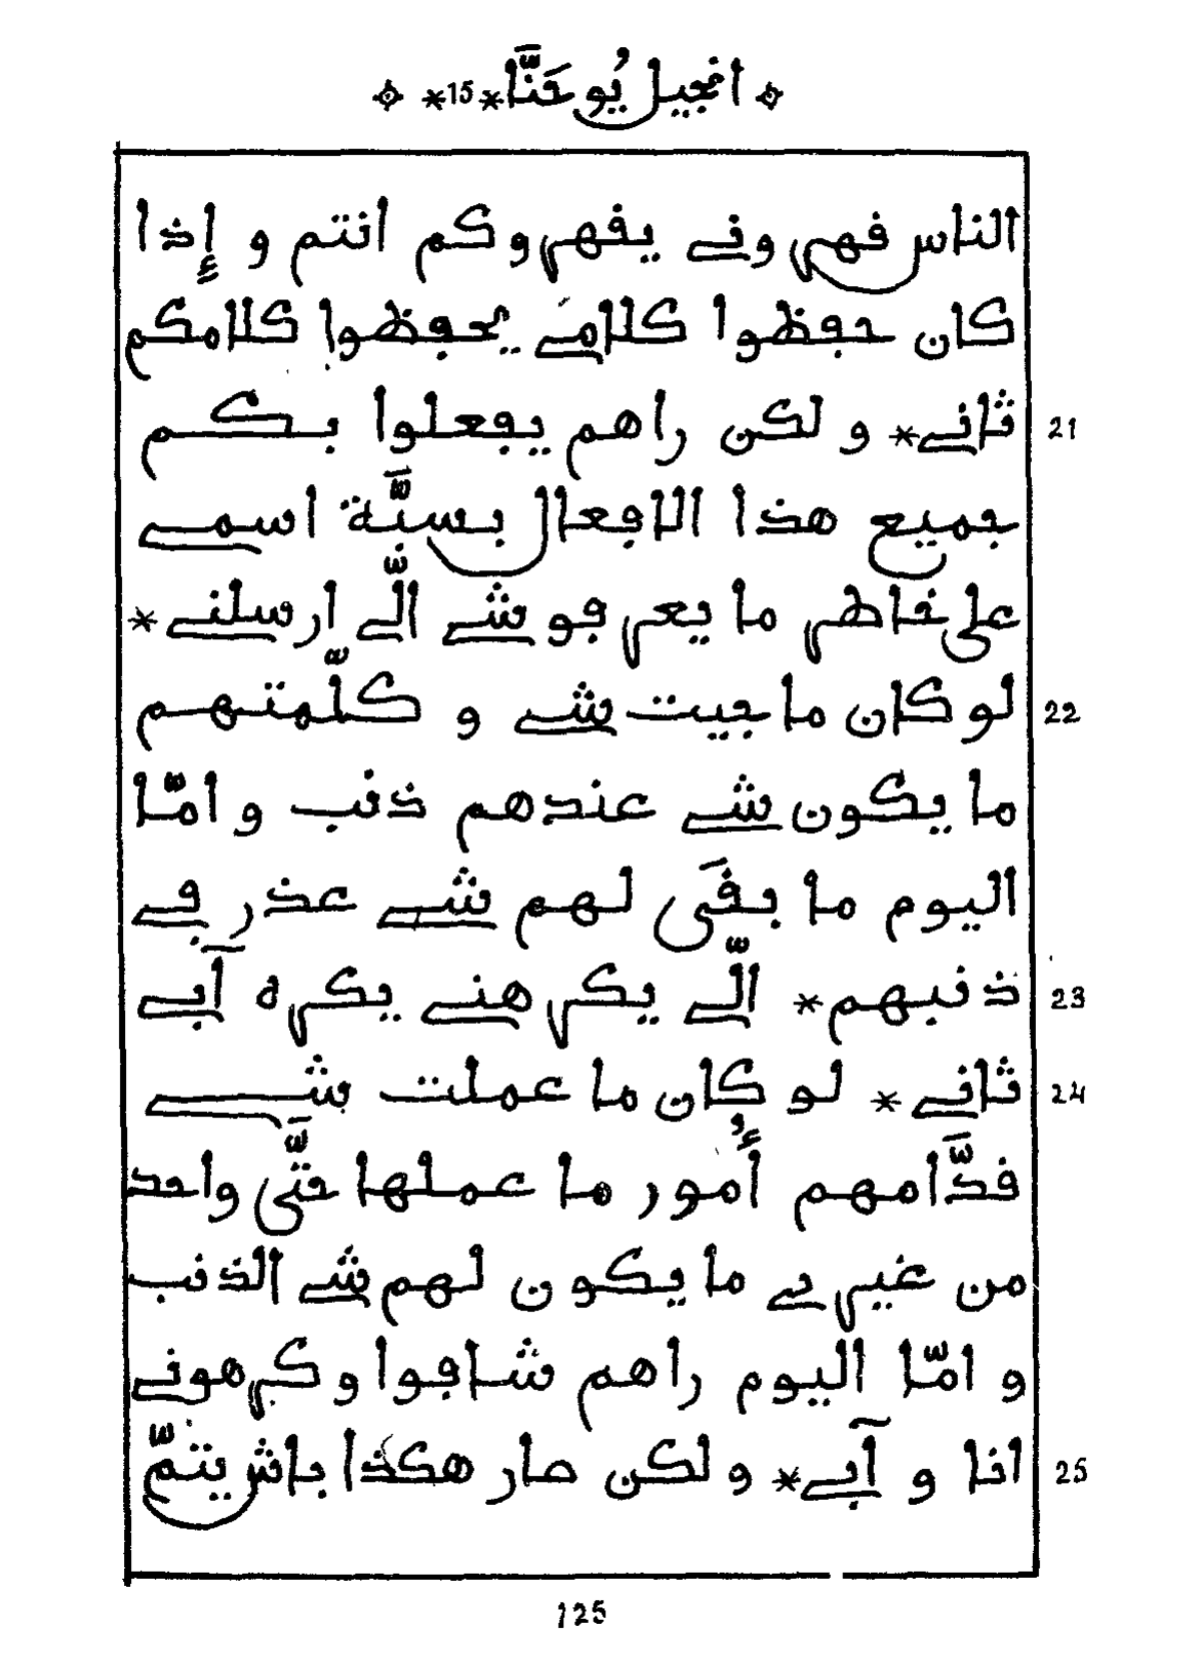 انجيل يُوحَنَّا *15*
الناس قهروني يقهروكم انتم و إِذا
كان حفظوا كلامي يحفظوا كلامكم
21 ثاني* و لكن راهم يفعلوا بكم
جميع هذا الافعال بسبَّة اسمي
على خاطر ما يعرفوشي الّي ارسلني*
22 لو كان ما جيت شي و كلّمتهم
ما يكون شي عندهم ذنب و امّا
اليوم ما بقَى لهم شي عذر في
23 ذنبهم* الّي يكرهني يكره آبي
24 ثاني* لو كان ما عملت شي
قدَّامهم أُمور ما عملها حتَّى واحد
من غيري ما يكون لهم شي الذنب
و امّا اليوم راهم شافوا و كرهوني
25 انا و آبي* و لكن صار هكذا باش يتمّ
125